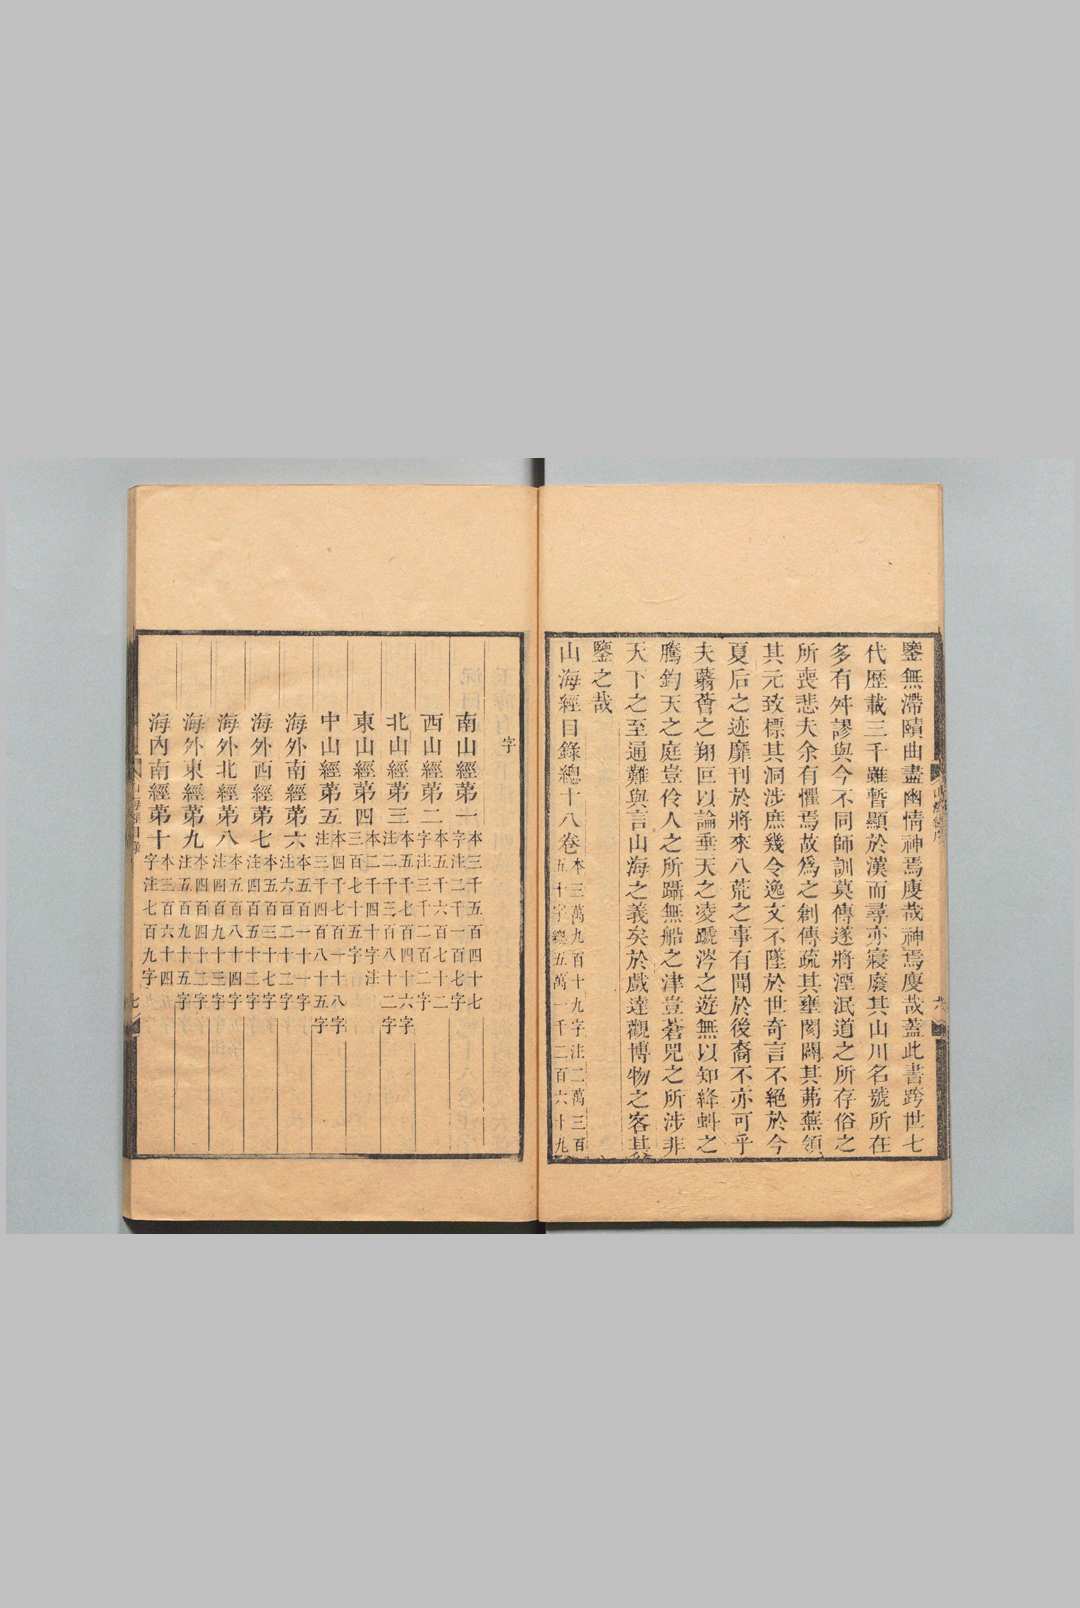 鑒無滯賾曲盡幽情神焉廋哉神焉廋哉蓋此書跨世七
代歷載三千雖暫顯於漢而尋亦寢廢其山川名號所在
多有舛謬與今不同師訓莫傳遂將湮泯道之所存俗之
所喪悲夫余有懼焉故爲之創傳疏其壅閡闢其茀蕪領
其元致標其洞涉庶幾令逸文不墜於世奇言不絕於今
夏后之迹靡刊於將來八荒之事有聞於後裔不亦可乎
夫蘙薈之翔叵以論垂天之凌蹏涔之遊無以知絳虯之
騰鈞天之庭豈伶人之所躡無船之津豈蒼兕之所涉非
天下之至通難與言山海之義矣於戲達觀博物之客其
鑒之哉
山海經目錄總十八卷本三萬九百十九字注二萬三百五十字總五萬一千二百六十九
字
南山經第一本三千五百四十七字注二千一百七字
西山經第二本五千六百七十二字注三千二百二字
北山經第三本五千七百四十六字注二千三百八十二字
東山經第四本二千四十字注三百七十五字
中山經第五本四千七百一十八字注三千四百八十五字
海外南經第六本五百一十一字注六百二十二字
海外西經第七本五百三十七字注四百五十二字
海外北經第八本五百八十四字注四百九十三字
海外東經第九本四百四十二字注五百九十五字
海內南經第十本三百六十四字注七百九字
山海經目錄
七
六